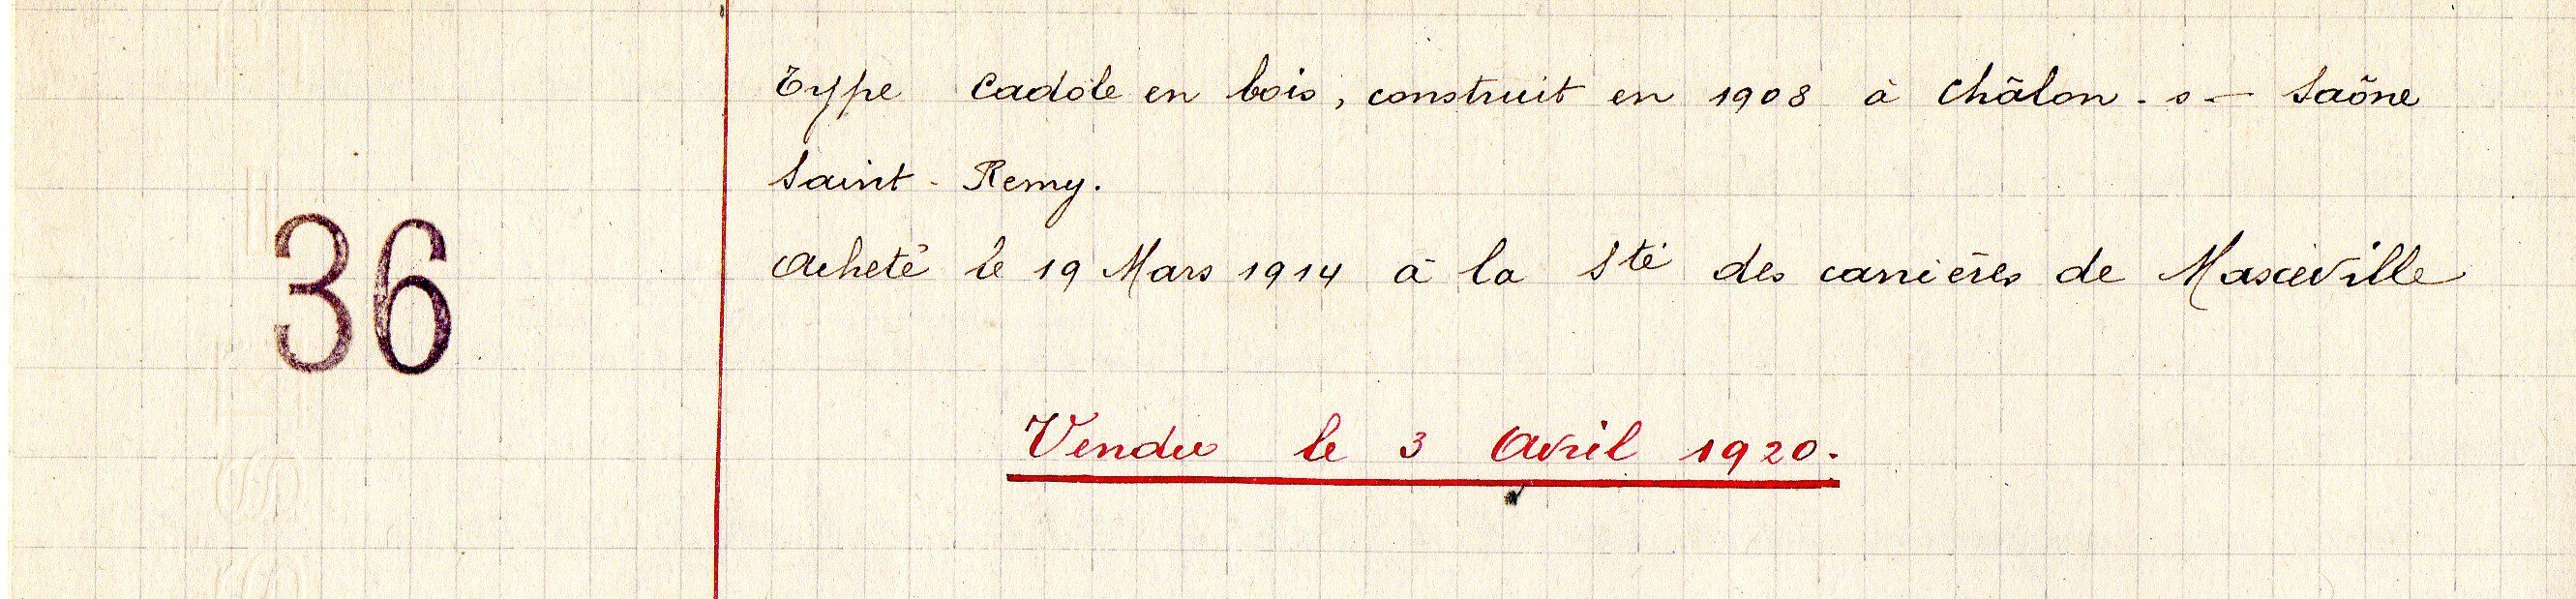 Type Cadole en bois, construit en 1908 à Châlon-s-Saône
Saint-Remy.
36
Acheté le 19 Mars 1914 à la Sté des carrières de
Vendu le 3 Avril 1920.